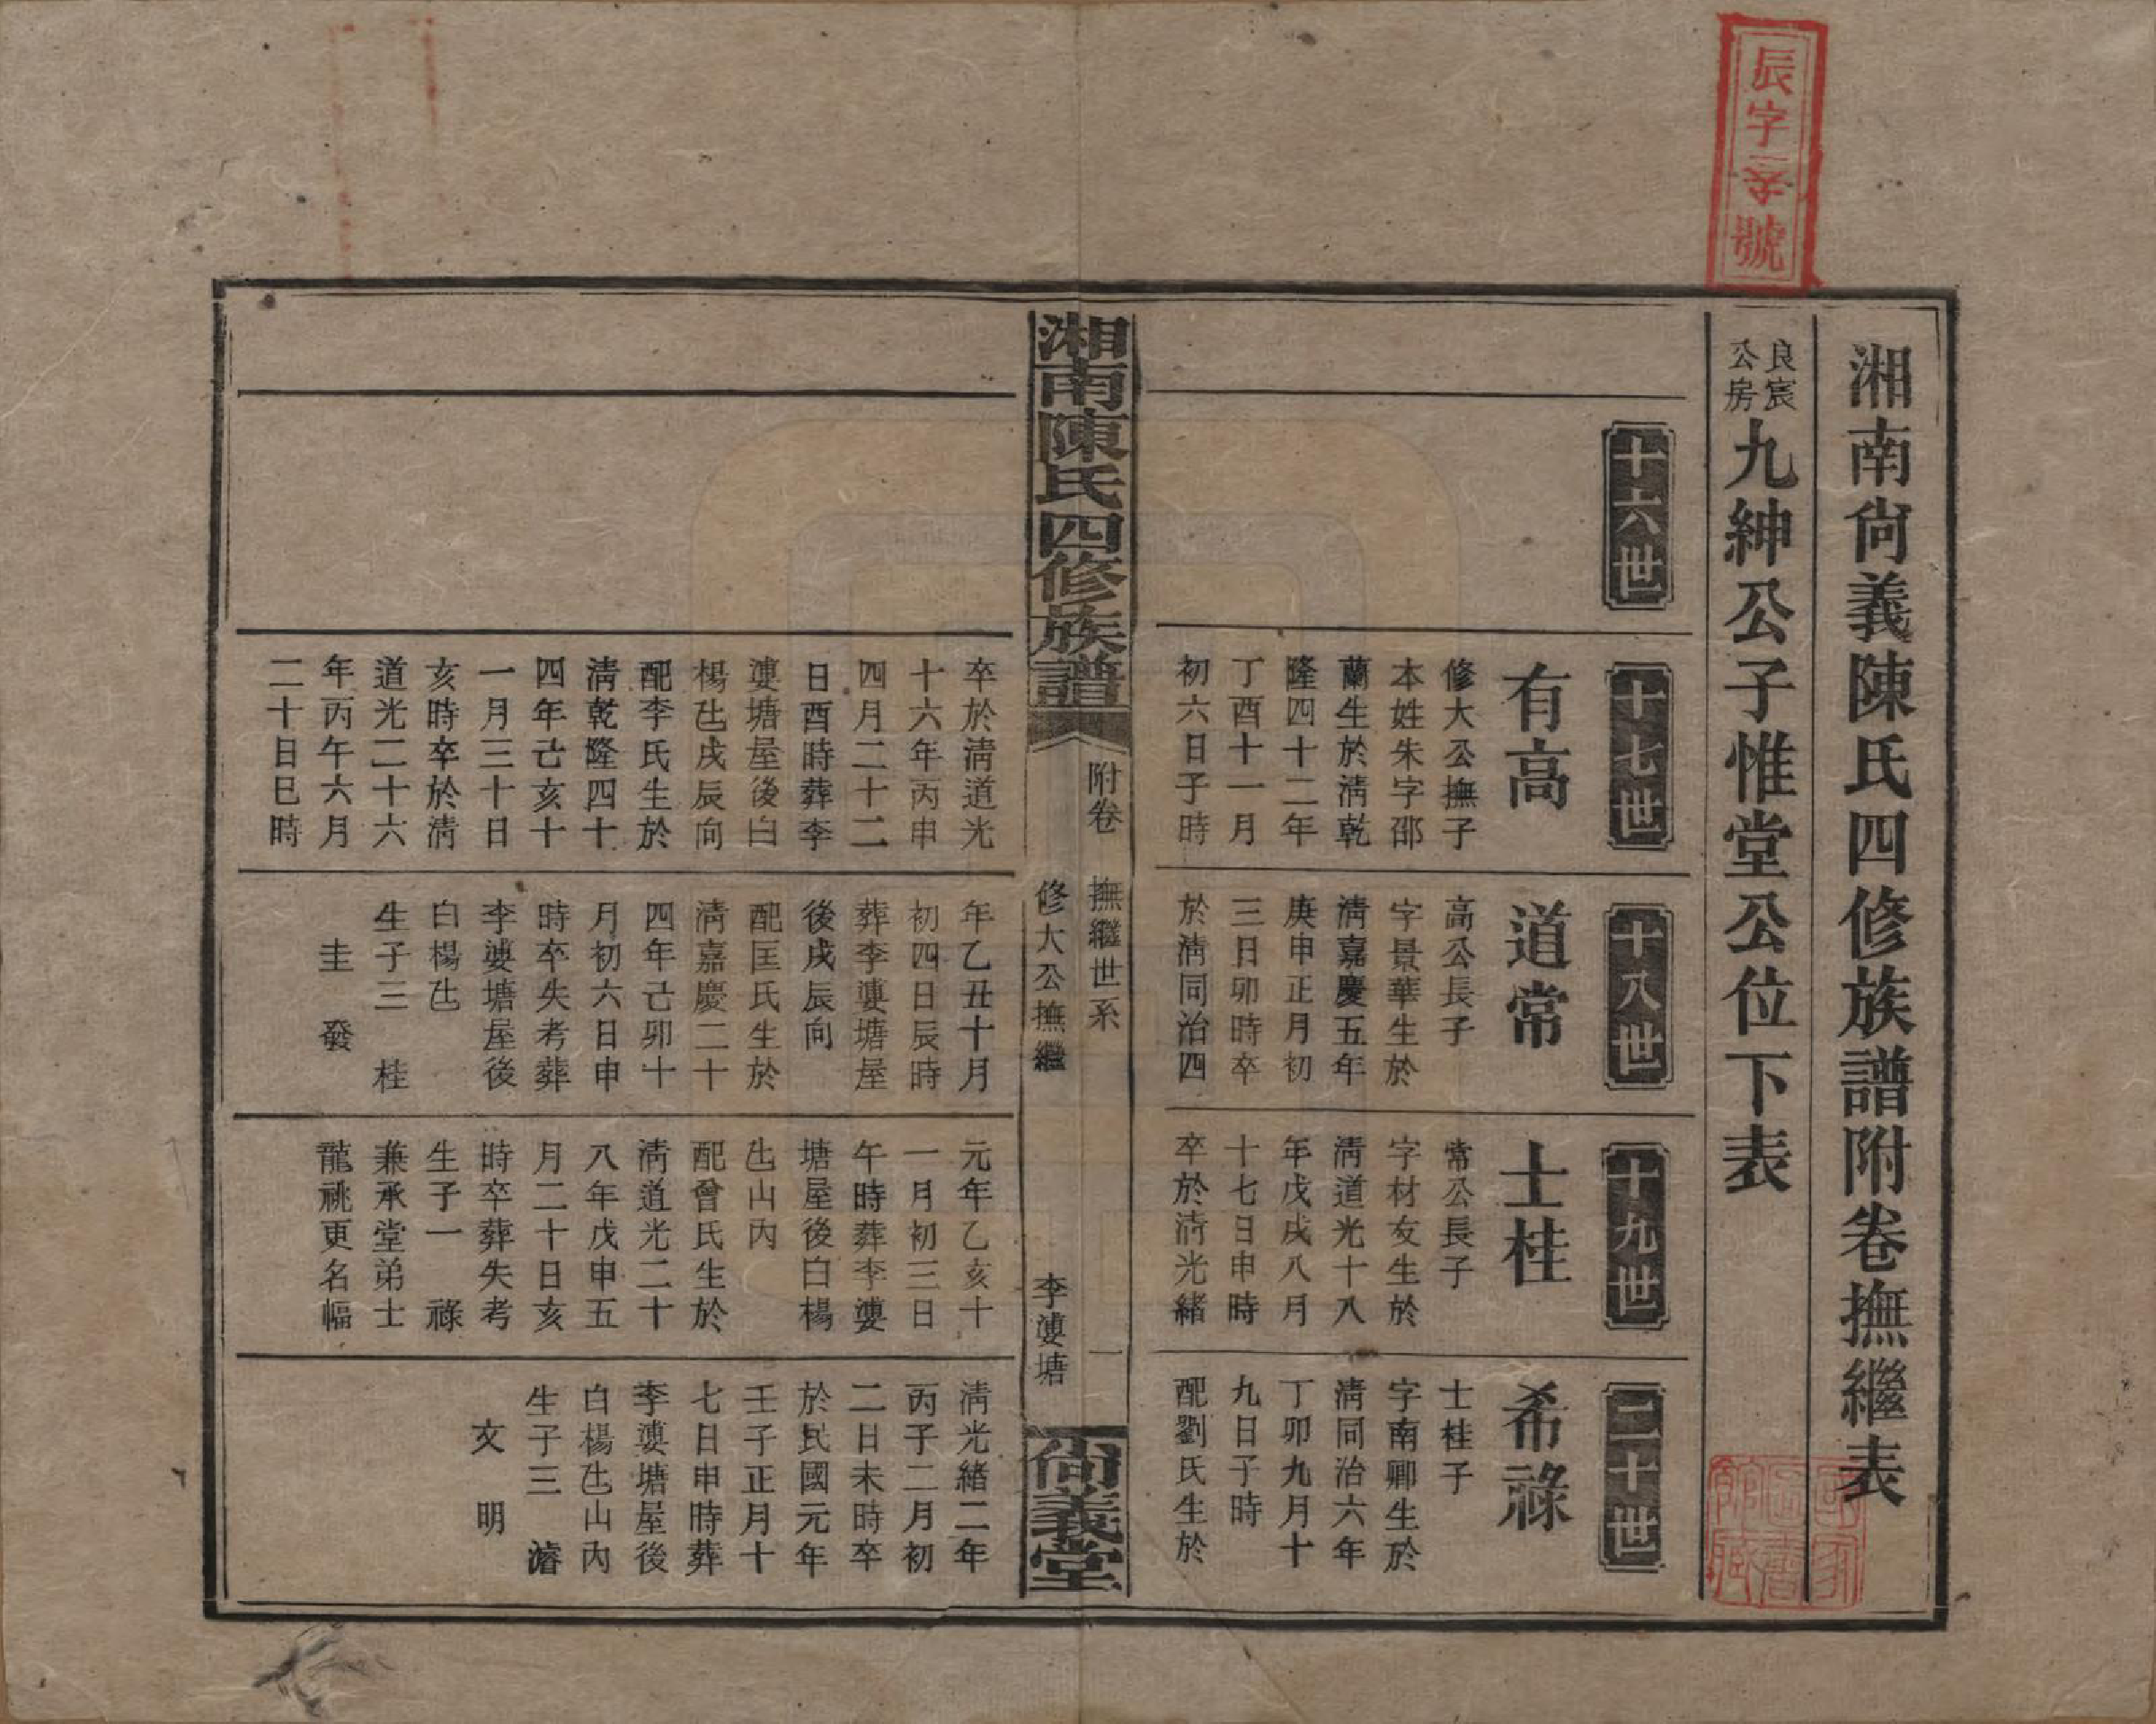 辰字 號
湘南尙義陳氏四修族譜附卷撫繼表
良宸公房九紳公子惟堂公位下表
十六世
十七世
有高
修大公撫子
本姓朱字邵
蘭生於淸乾
隆四十二年
丁酉十一月
初六日子時
卒於淸道光
十六年丙申
四月二十二
日酉時葬李
㜢塘屋後白
楊㐌戌辰向
配李氏生於
淸乾隆四十
四年己亥十
一月三十日
亥時卒於淸
道光二十六
年丙午六月
二十日巳時
十八世
道常
高公長子
字景華生於
淸嘉慶五年
庚申正月初
三日卯時卒
於淸同治四
年乙丑十月
初四日辰時
葬李㜢塘屋
後戌辰向
配匡氏生於
淸嘉慶二十
四年己卯十
月初六日申
時卒失考葬
李㜢塘屋後
白楊㐌
生子三 桂
圭 發
十九世
士桂
常公長子
字材友生於
淸道光十八
年戊戌八月
十七日申時
卒於淸光緖
元年乙亥十
一月初三日
午時葬李㜢
塘屋後白楊
㐌山內
配曾氏生於
淸道光二十
八年戊申五
月二十日亥
時卒葬失考
生子一 祿
兼承堂弟士
龍祧更名幅
二十世
希祿
士桂子
字南卿生於
淸同治六年
丁卯九月十
九日子時
配劉氏生於
淸光緖二年
丙子二月初
二日未時卒
於民國元年
壬子正月十
七日申時葬
李㜢塘屋後
白楊㐌山內
生子三 濬
文 明
湘南陳氏四修族譜
附卷 撫繼世系 一
修大公撫繼 李㜢塘
尙義堂